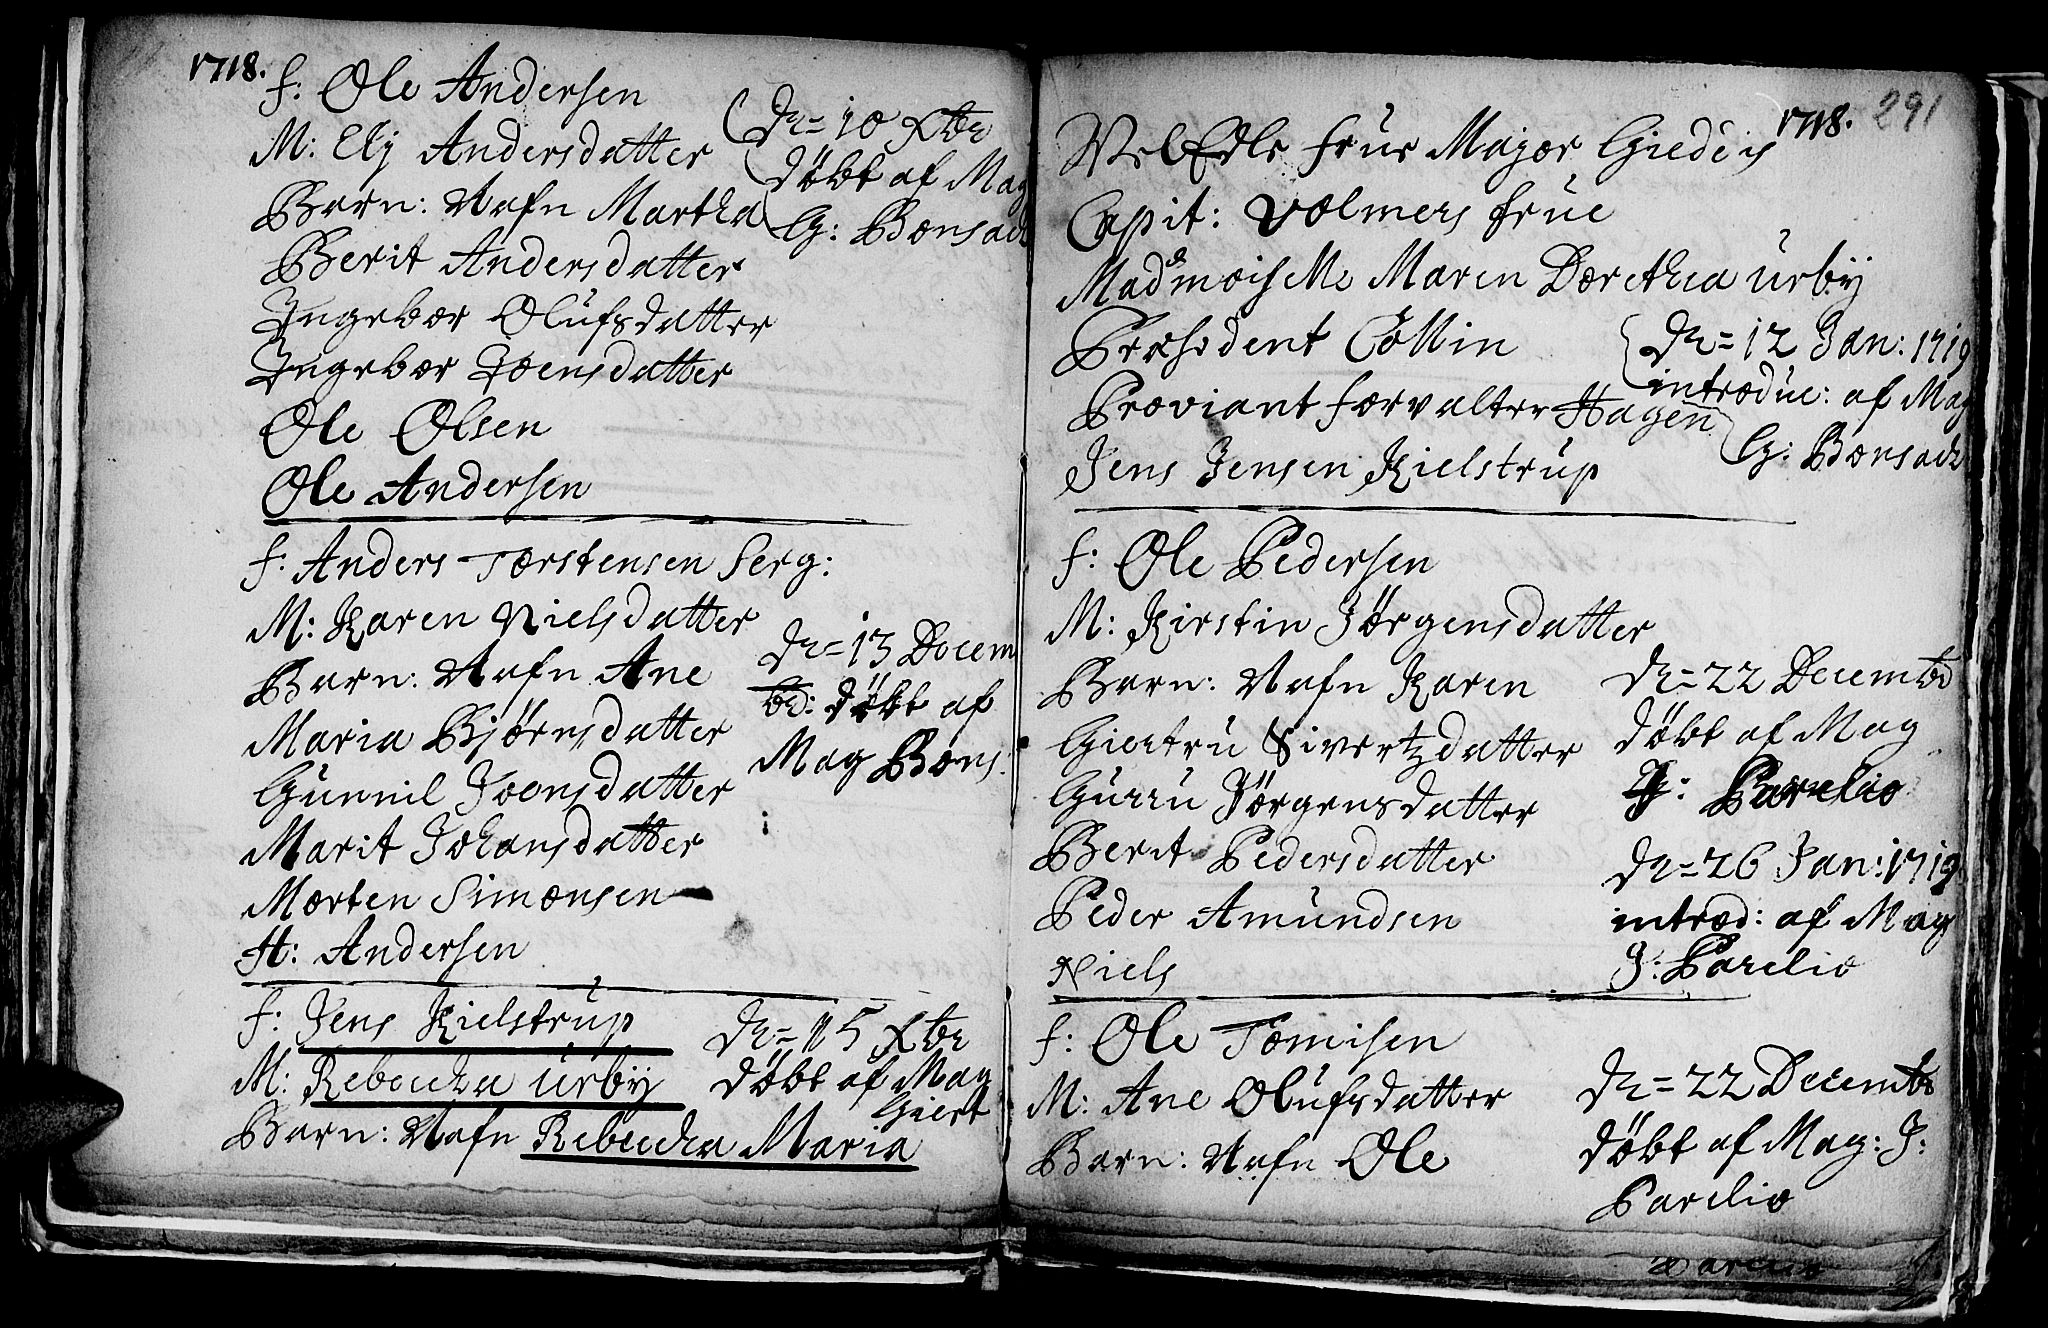 1718.
f: Ole Andersen
M: Elj Andersdatter
Barn: Nafn Martha
Berit Andersdatter
Ingebor Olufsdatter
Ingebor Joensdatter
Ole Olsen
Ole Andersen
Dn = 10 Xbr
döbt af Mag
G: Bonsach
f: Anders Torstensen Serg:
M: Karen Nielsdatter
Barn: Nafn Ane
Maria Bjørnsdatter
Gunnil Joensdatter
Marit Johansdatter
Morten Simonsen
H: Andersen
Dn = 13 Decem
br: döbt af
Mag Bons:
f: Jens Kielstrup
M: Rebecka Urby
Barn: Nafn Rebecka Maria
Dn = 15 Xbr
döbt af Mag
Giert
1718.
291
VelEdle frue Major Giedeis
Capit: Volmers frue
Mademoiselle Maren Dorethea Urby
Præsident Collin
Proviant forvalter Hagen
Jens Jensen Kielstrup
Dn = 12 Jan: 1719
introduc: af Mag
G: Bonsach
f: Ole Pedersen
M: Kirstin Jörgensdatter
Barn: Nafn Karen
Giertru Sivertzdatter
Gurru Jörgensdatter
Berit Pedersdatter
Peder Amundsen
Niels
Dn = 22 Decembr
döbt af Mag
J: Parelio
Dn = 26 Jan: 1719
introd: af Mag
J: Parelio
f: Ole Tomisen
M: Ane Olufsdatter
Barn: Nafn Ole
Dn = 22 Decembr
döbt af Mag: J:
Parelio